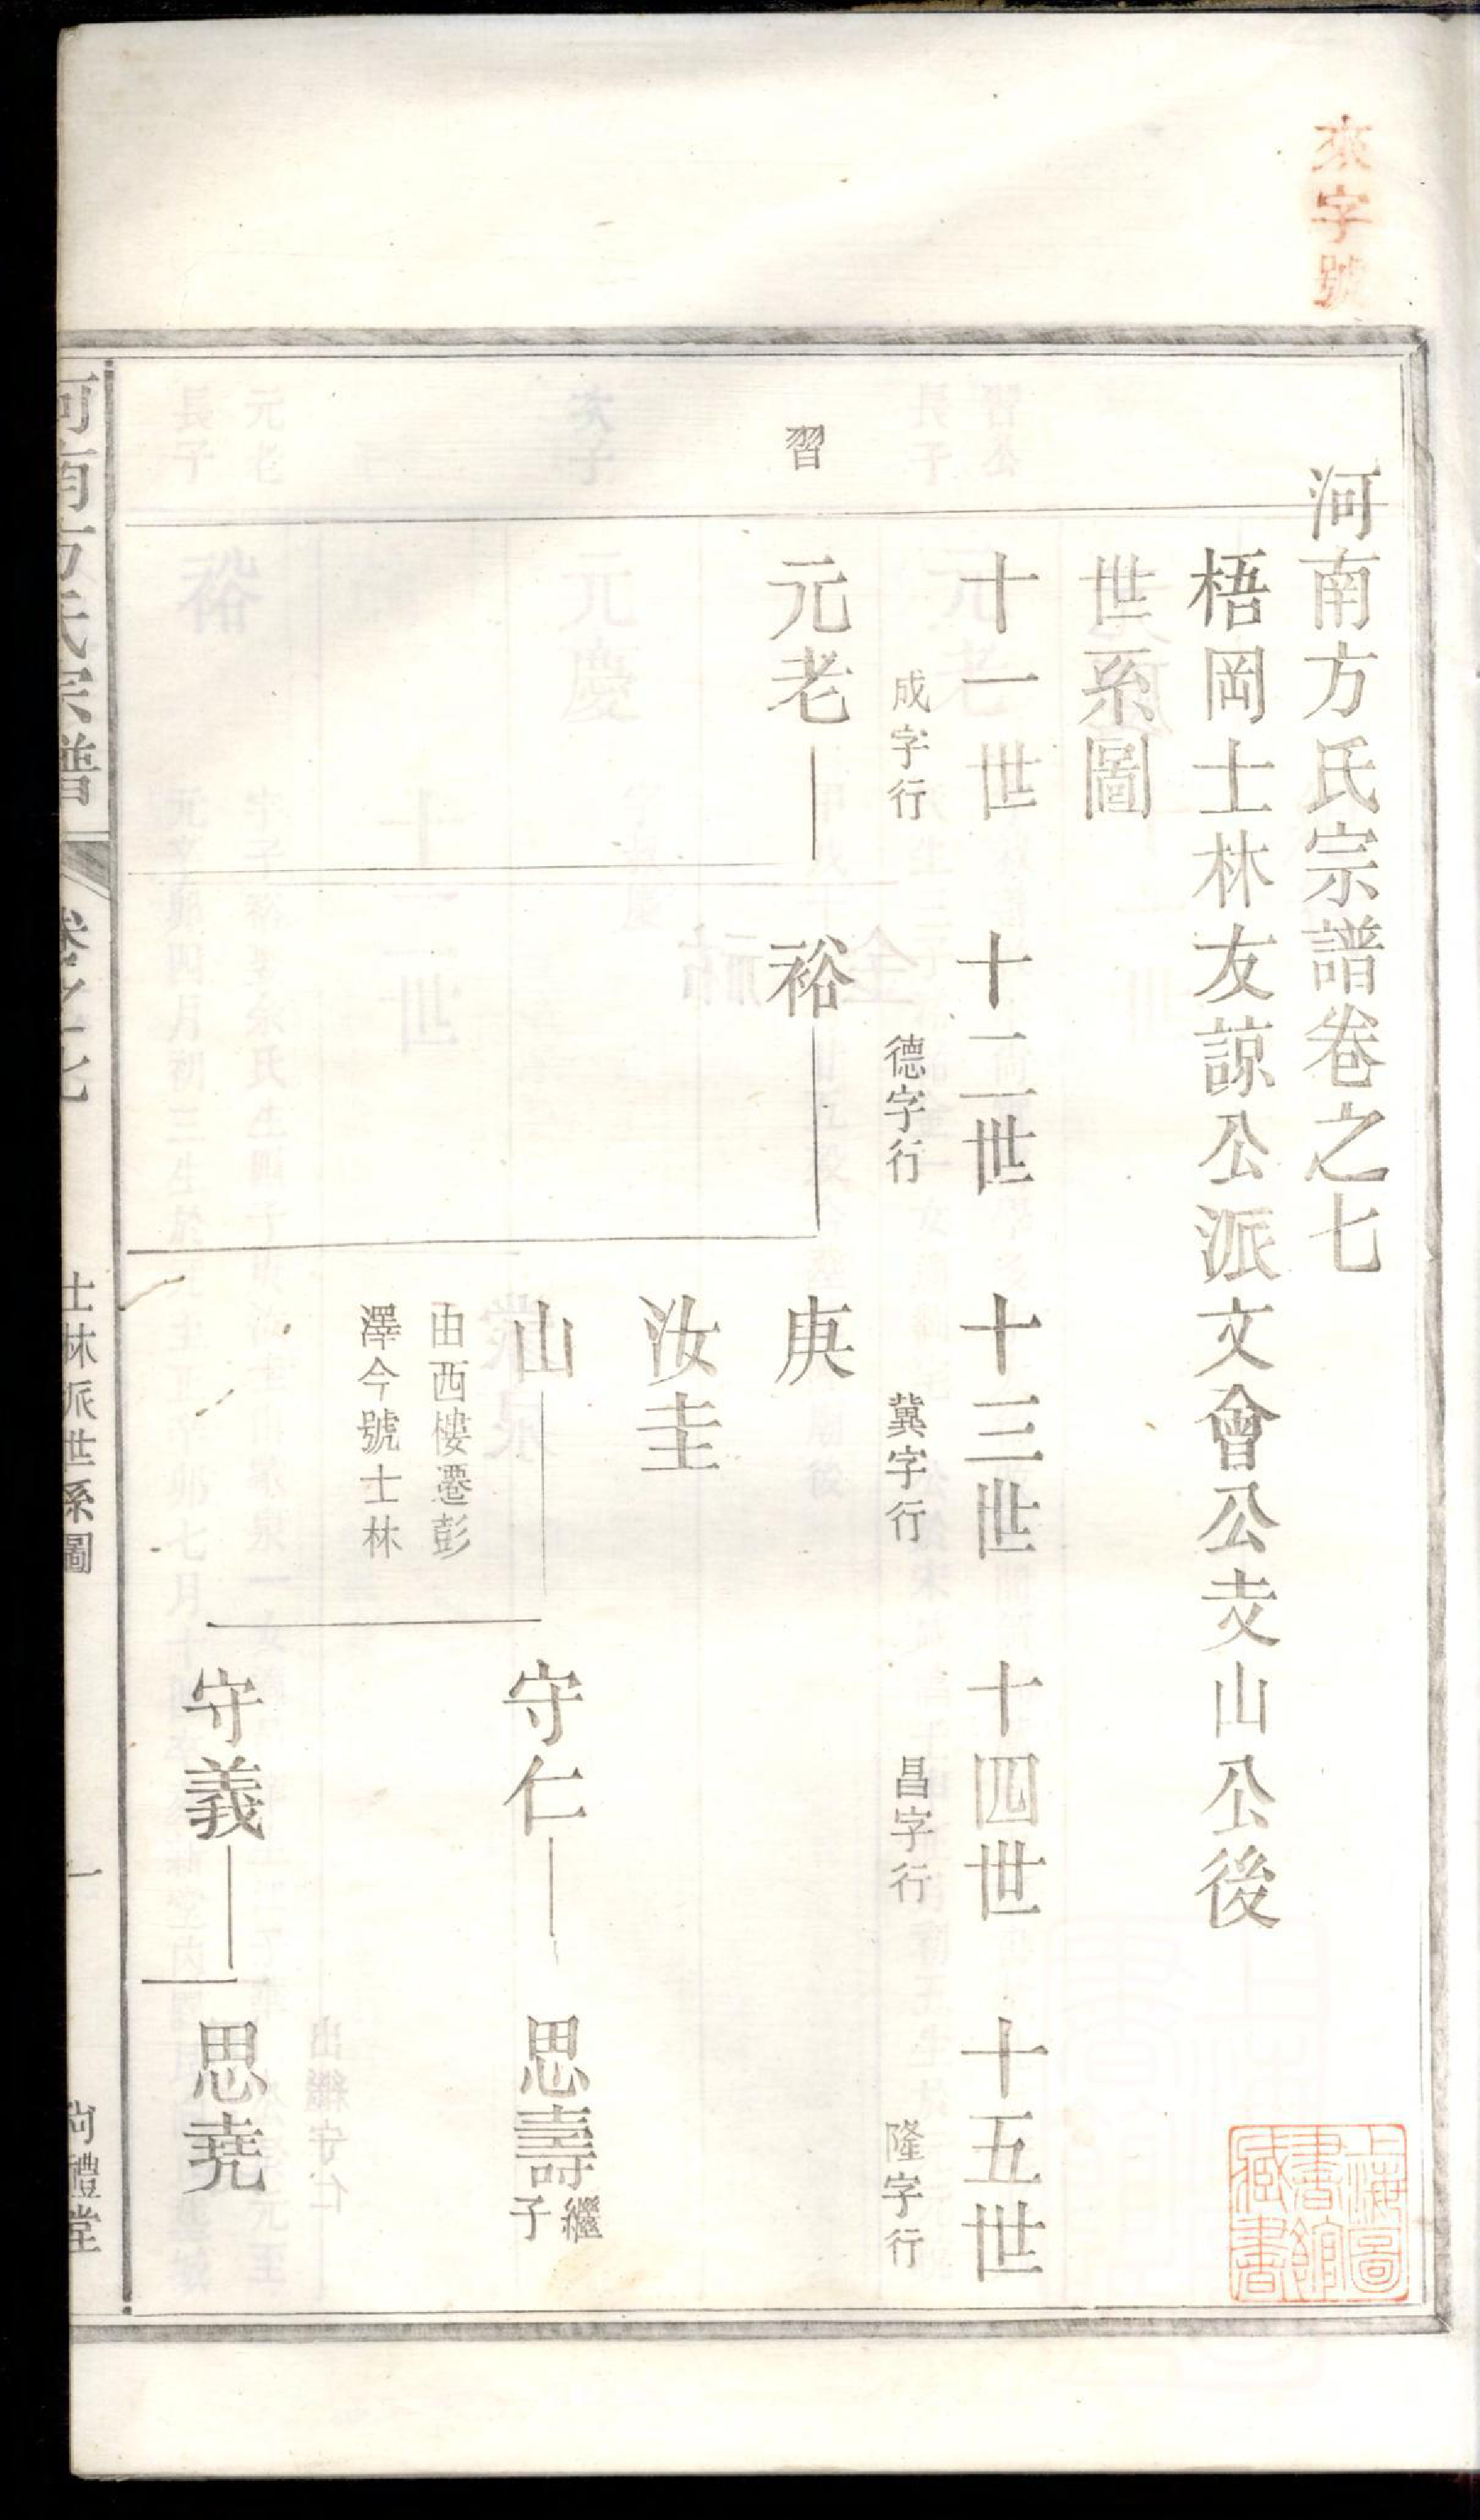 來字號
河南方氏宗譜卷之七
梧岡士林友諒公派文會公支山公後
世系圖
十一世 十二世 十三世 十四世 十五世
成字行 德字行 冀字行 昌字行 隆字行
習
元老 裕 庚
汝圭
山 守仁 思壽 繼子
由西樓遷彭
澤今號士林
守義 思堯
河南方氏宗譜 卷之七 士林派世系圖 一 尚禮堂
上海圖書館藏書